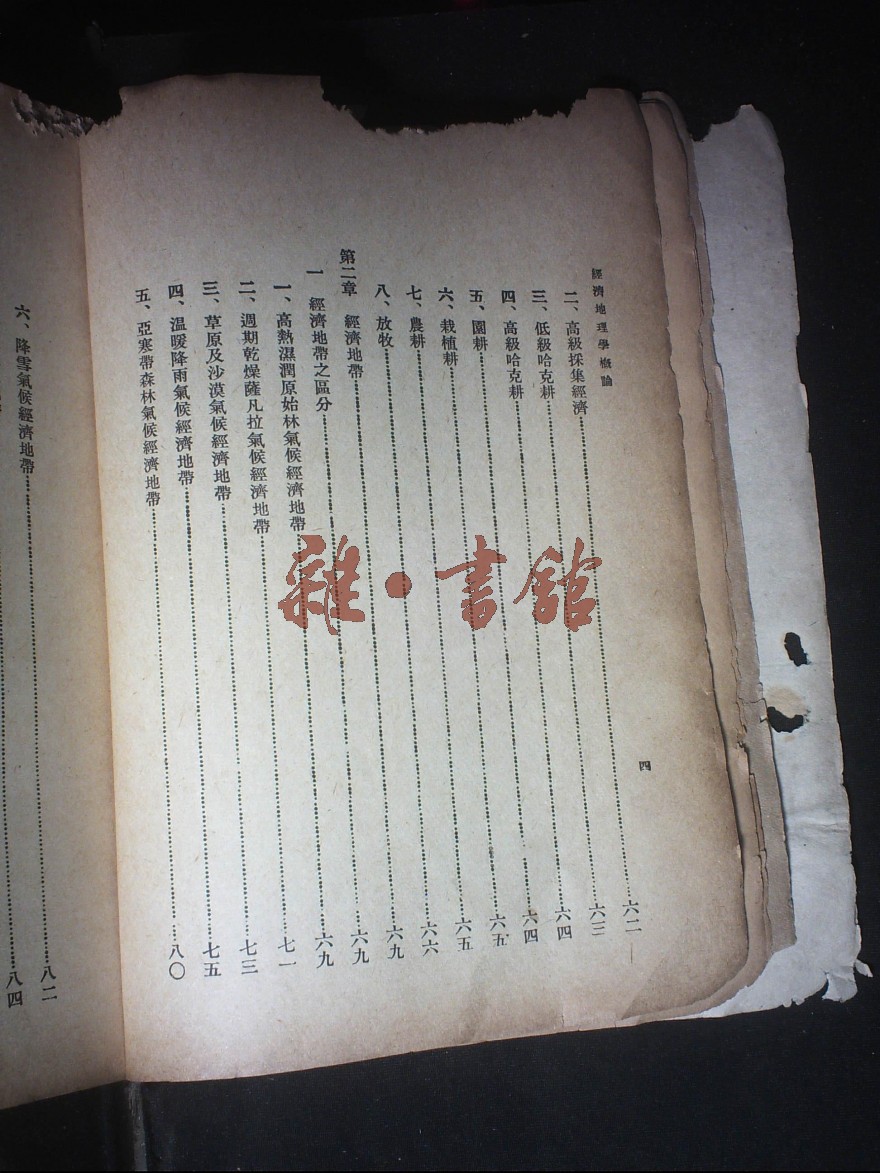 經濟地理學概論
四
二、高級採集經濟……六二
三、低級哈克耕……六三
四、高級哈克耕……六四
五、園耕……六四
六、栽植耕……六五
七、農耕……六五
八、放牧……六六
第二章 經濟地帶……六九
一 經濟地帶之區分……六九
一、高熱濕潤原始林氣候經濟地帶……六九
二、週期乾燥薩凡拉氣候經濟地帶……七一
三、草原及沙漠氣候經濟地帶……七三
四、温暖降雨氣候經濟地帶……七五
五、亞寒帶森林氣候經濟地帶……八〇
六、降雪氣候經濟地帶……八二
八四
雜·書館